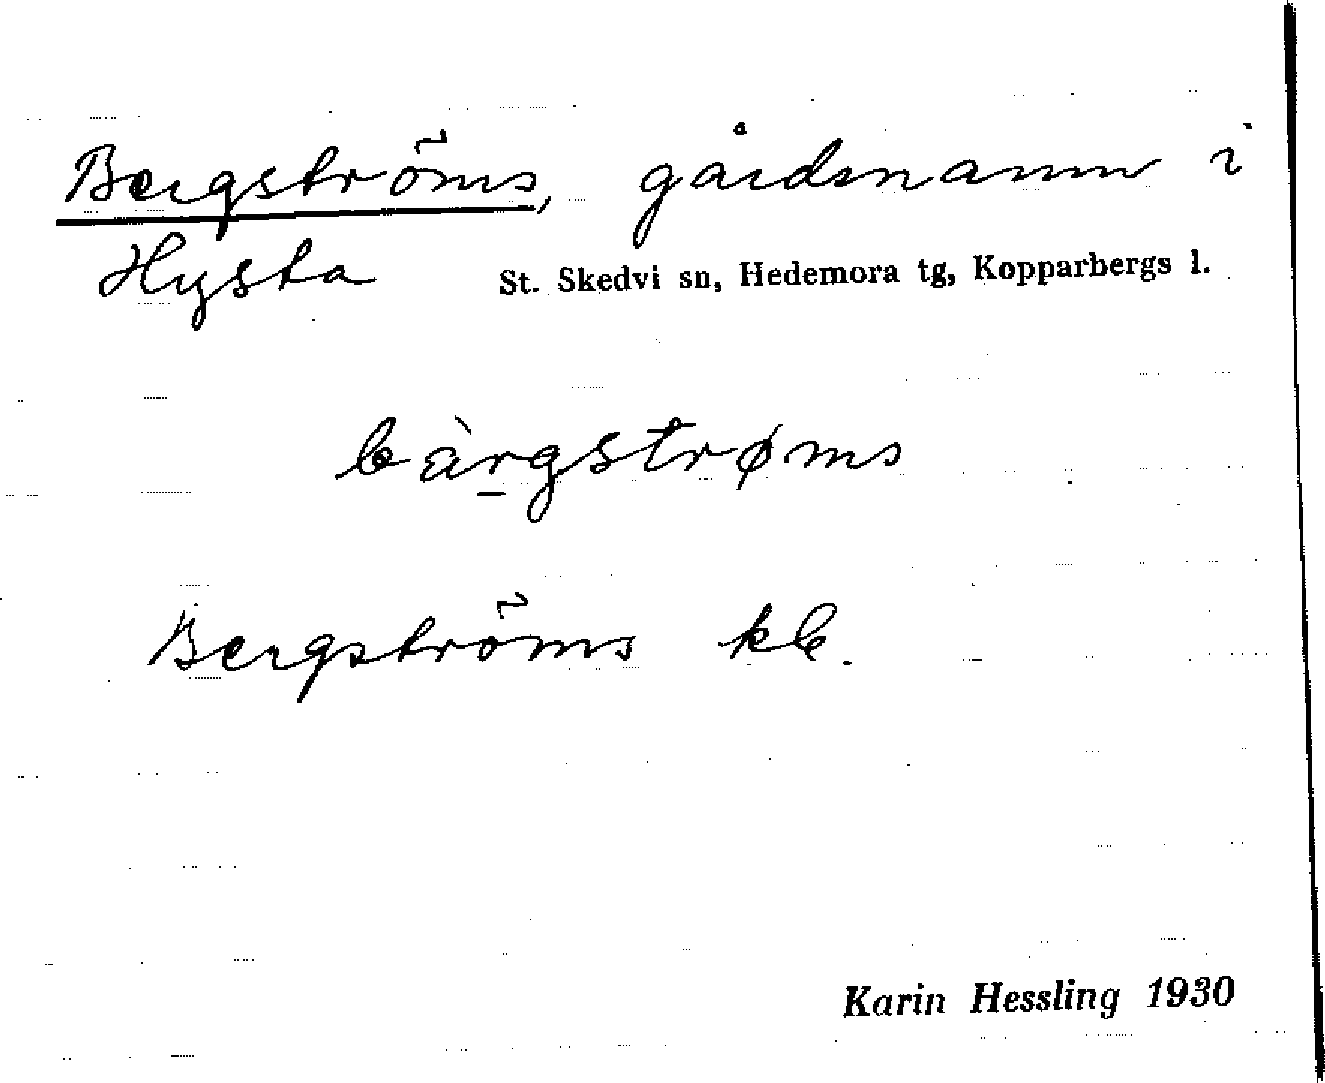 Bergströms, gårdsnamn i
Hysta St. Skedvi sn, Hedemora tg, Kopparbergs l.
bàr̠gstrøms
Bergströms kb.
Karin Hessling 1930